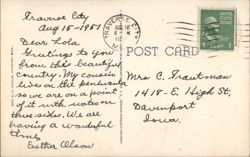 Traverse City
Aug 15-1951
Dear Lola
Greetings to you
from this beautiful
country. My cousin
lives on the peninsula
so we are on a point
of it with water on
three sides. We are
having a wonderful
time
Esther Olson
TRAVERSE CITY
AUG
POST CARD
1 CENT 1
Mrs C. Trautman
1418- E. High St,
Davenport
Iowa.